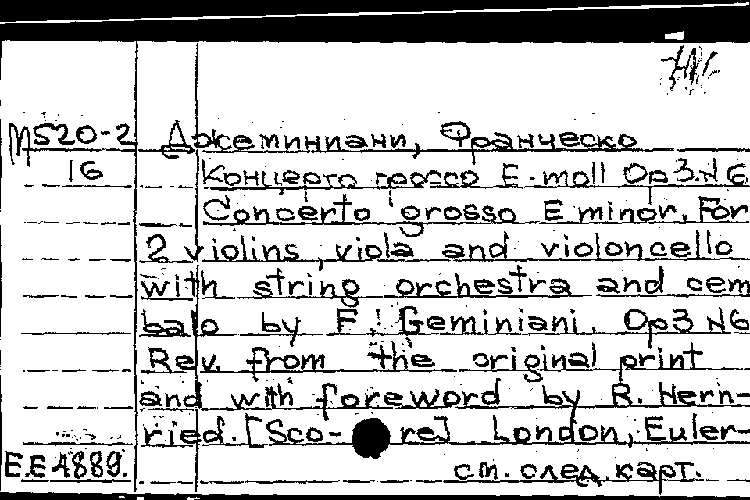 М520-2 Джеминиани, Франческо
16 Концерто гроссо E-moll Op3.N6
Concerto grosso E minor, For
2 violins, viola and violoncello
with string orchestra and cem
balo by F. Geminiani. Op3 N6
Rev. from the original print
and with foreword by R. Hern-
ried. [Sco-re] London, Euler-
E.E 4889. см. след. карт.